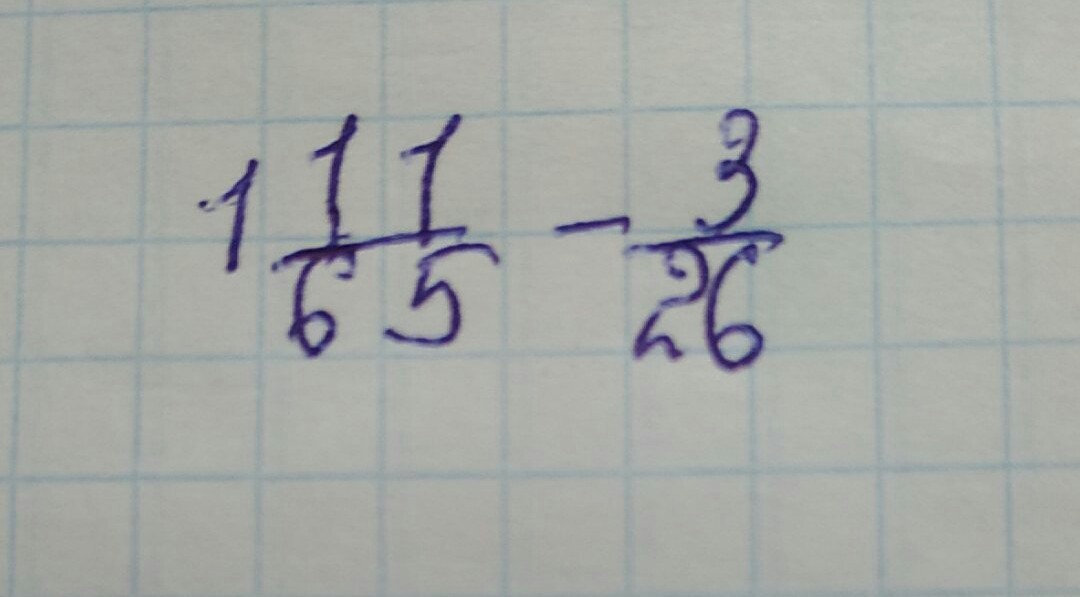 1 11/65 - 3/26